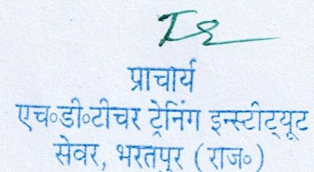 प्राचार्य
एच०डी०टीचर ट्रेनिंग इन्स्टीट्यूट
सेवर, भरतपुर (राज०)